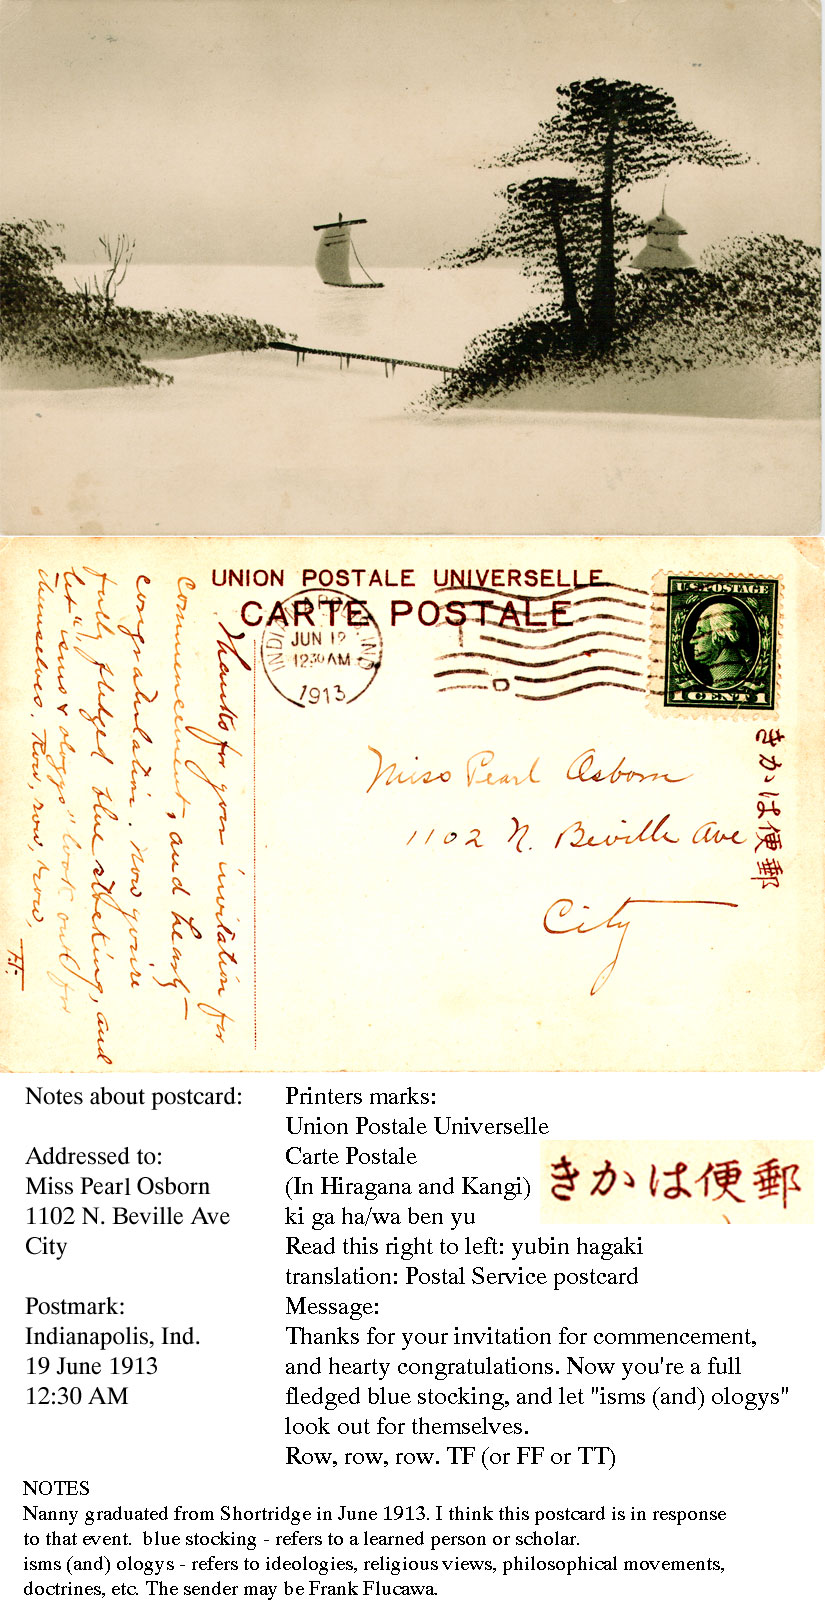 UNION POSTALE UNIVERSELLE
CARTE POSTALE
INDIANAPOLIS, IND.
JUN 19
1230 AM
1913
U.S. POSTAGE
1 CENT 1
きかは便郵
Miss Pearl Osborn
1102 N. Beville Ave
City
Thanks for your invitation for
commencement, and hearty
congratulation. Now you're
fully fledged blue stocking, and
let "isms & ologys" look out for
themselves. Row, row, row,
Notes about postcard:
Addressed to:
Miss Pearl Osborn
1102 N. Beville Ave
City
Postmark:
Indianapolis, Ind.
19 June 1913
12:30 AM
Printers marks:
Union Postale Universelle
Carte Postale
(In Hiragana and Kangi)
きかは便郵
ki ga ha/wa ben yu
Read this right to left: yubin hagaki
translation: Postal Service postcard
Message:
Thanks for your invitation for commencement,
and hearty congratulations. Now you're a full
fledged blue stocking, and let "isms (and) ologys"
look out for themselves.
Row, row, row. TF (or FF or TT)
NOTES
Nanny graduated from Shortridge in June 1913. I think this postcard is in response
to that event.  blue stocking - refers to a learned person or scholar.
isms (and) ologys - refers to ideologies, religious views, philosophical movements,
doctrines, etc. The sender may be Frank Flucawa.